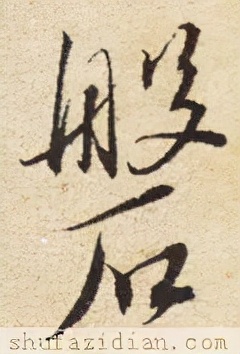 磐
shufazidian.com